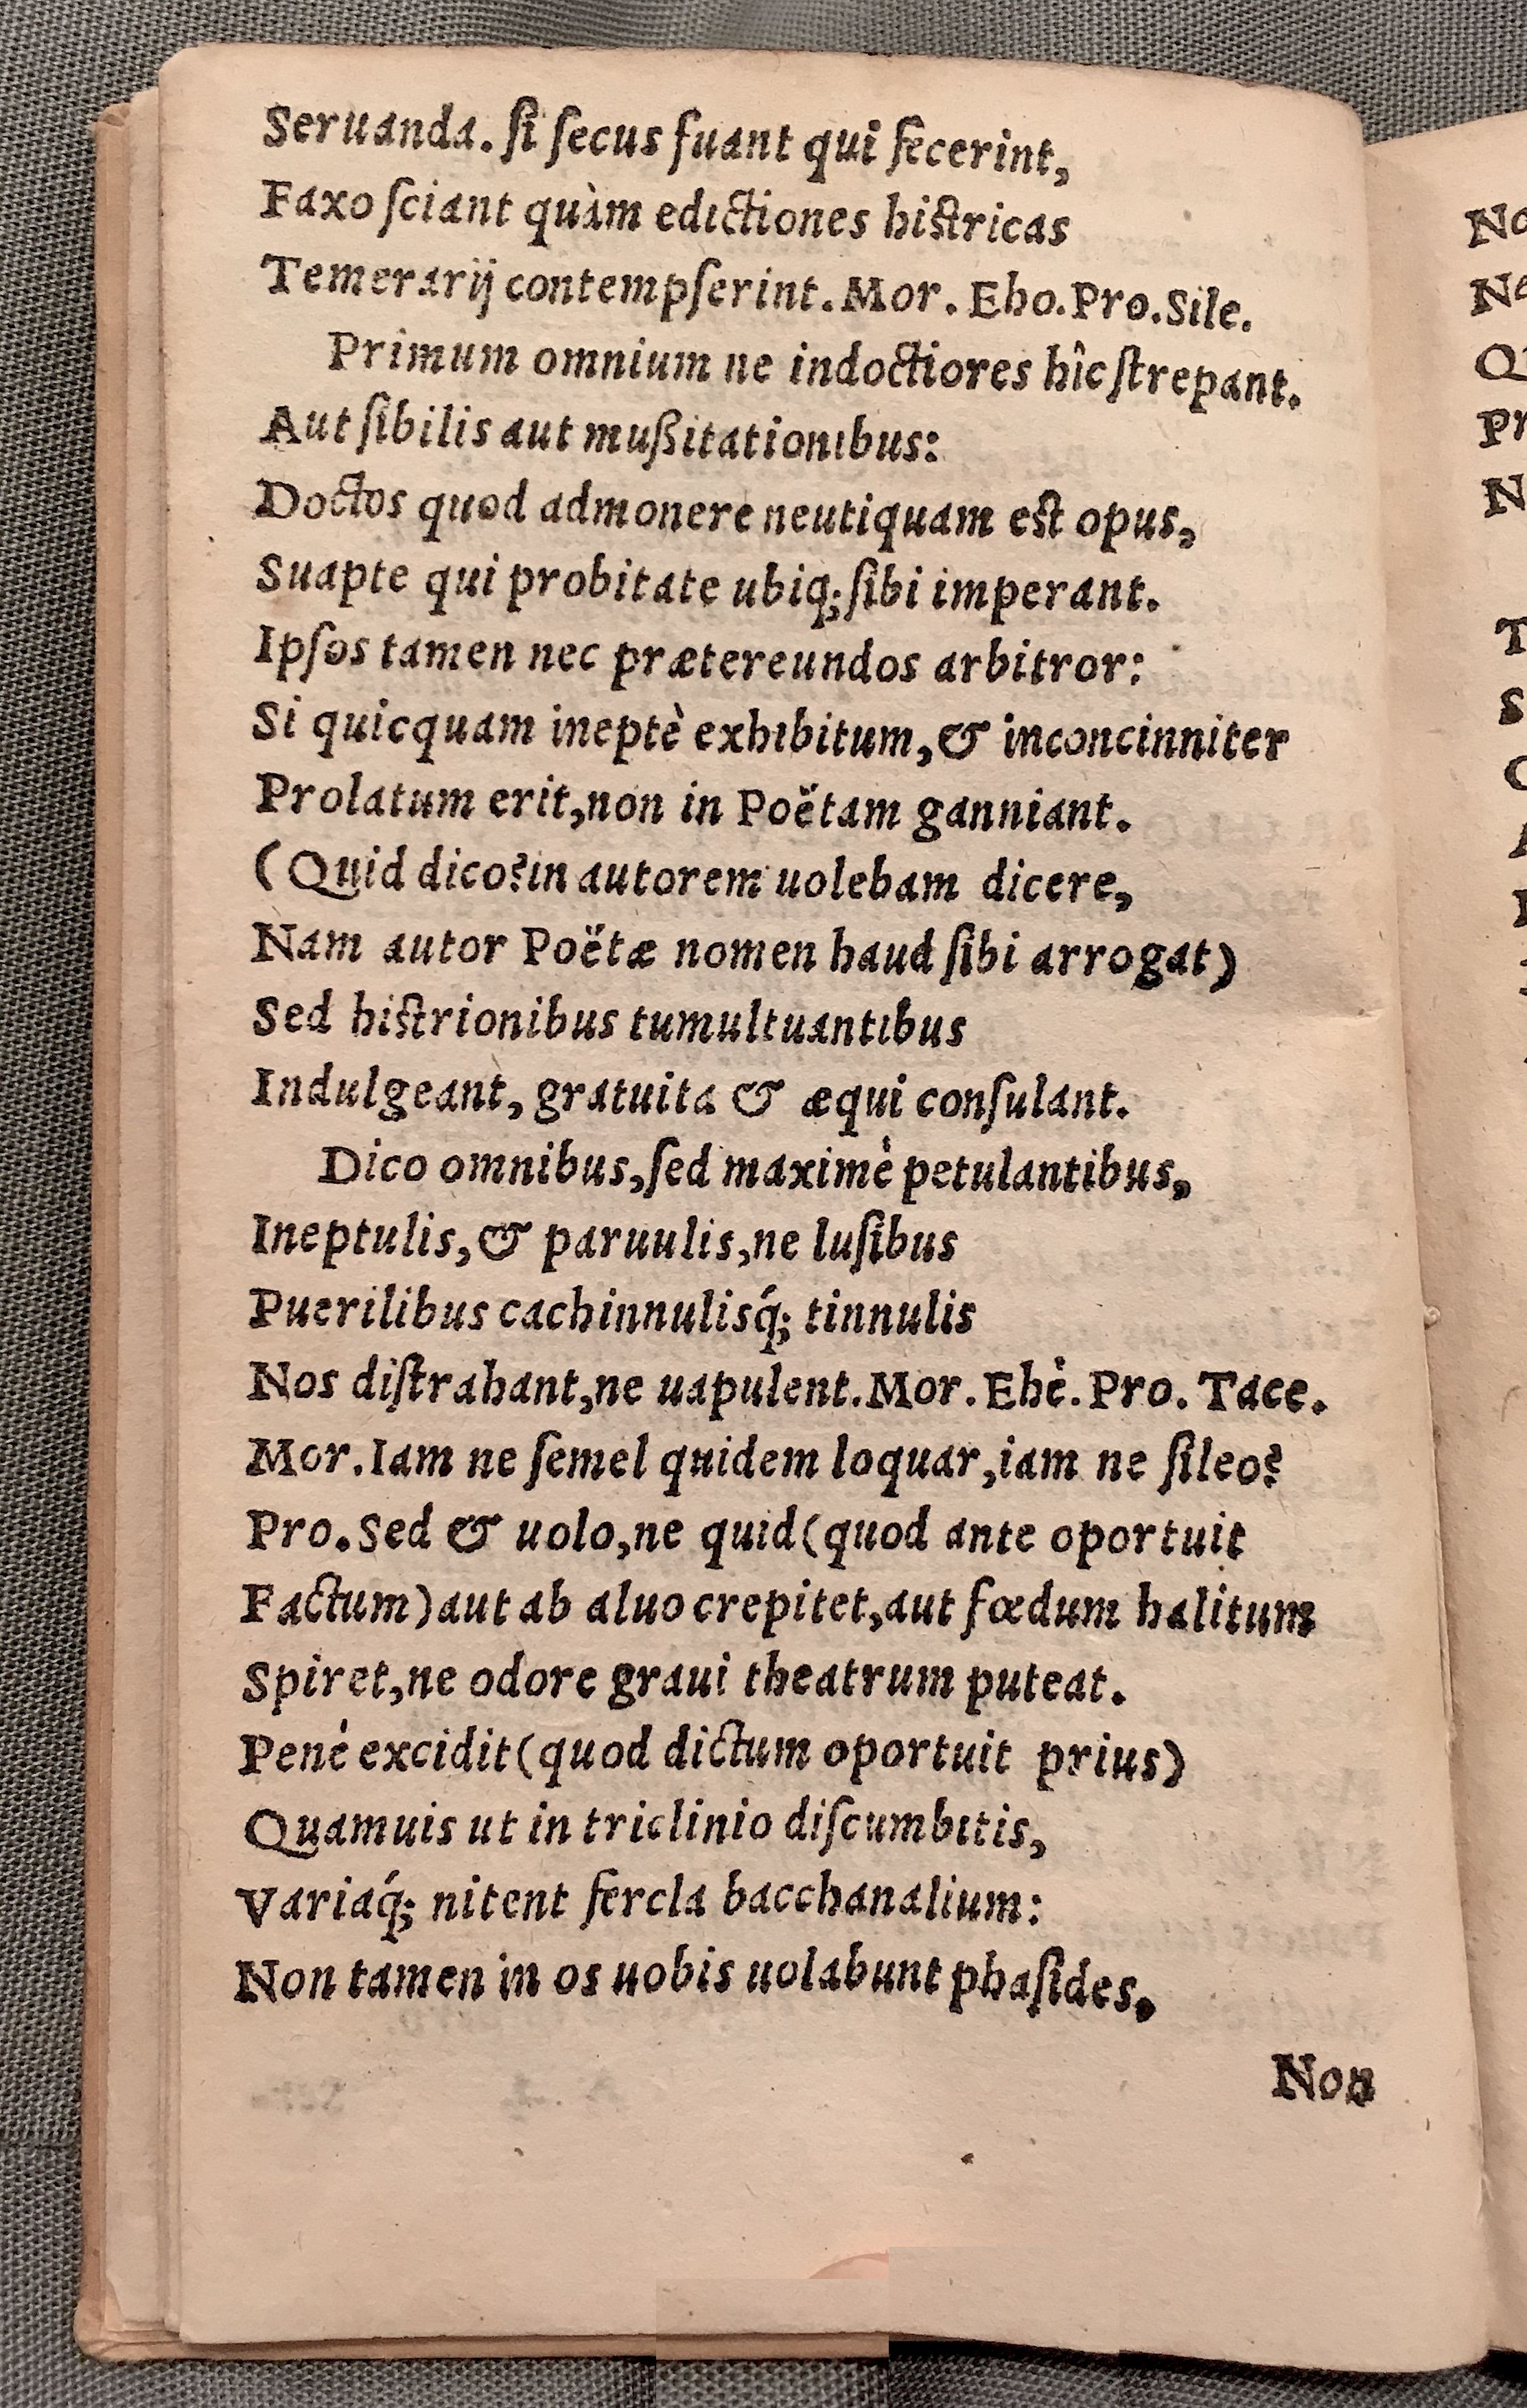 Seruanda. ſi ſecus fuant qui fecerint,
Faxo ſciant quàm edictiones hiſtricas
Temerarij contempſerint. Mor. Eho. Pro. Sile.
Primum omnium ne indoctiores hîc ſtrepant.
Aut ſibilis aut mußitationibus:
Doctos quod admonere neutiquam eſt opus,
Suapte qui probitate ubiq; ſibi imperant.
Ipſos tamen nec prætereundos arbitror:
Si quicquam ineptè exhibitum, & inconcinniter
Prolatum erit, non in Poëtam ganniant.
(Quid dico? in autorem uolebam dicere,
Nam autor Poëtæ nomen haud ſibi arrogat)
Sed hiſtrionibus tumultuantibus
Indulgeant, gratuita & æqui conſulant.
Dico omnibus, ſed maximè petulantibus,
Ineptulis, & paruulis, ne luſibus
Puerilibus cachinnulisq́; tinnulis
Nos diſtrahant, ne uapulent. Mor. Ehè. Pro. Tace.
Mor. Iam ne ſemel quidem loquar, iam ne ſileo?
Pro. Sed & uolo, ne quid (quod ante oportuit
Factum) aut ab aluo crepitet, aut fœdum halitum
Spiret, ne odore graui theatrum puteat.
Penè excidit (quod dictum oportuit prius)
Quamuis ut in triclinio diſcumbitis,
Variaq́; nitent fercla bacchanalium:
Non tamen in os uobis uolabunt phaſides.
Non